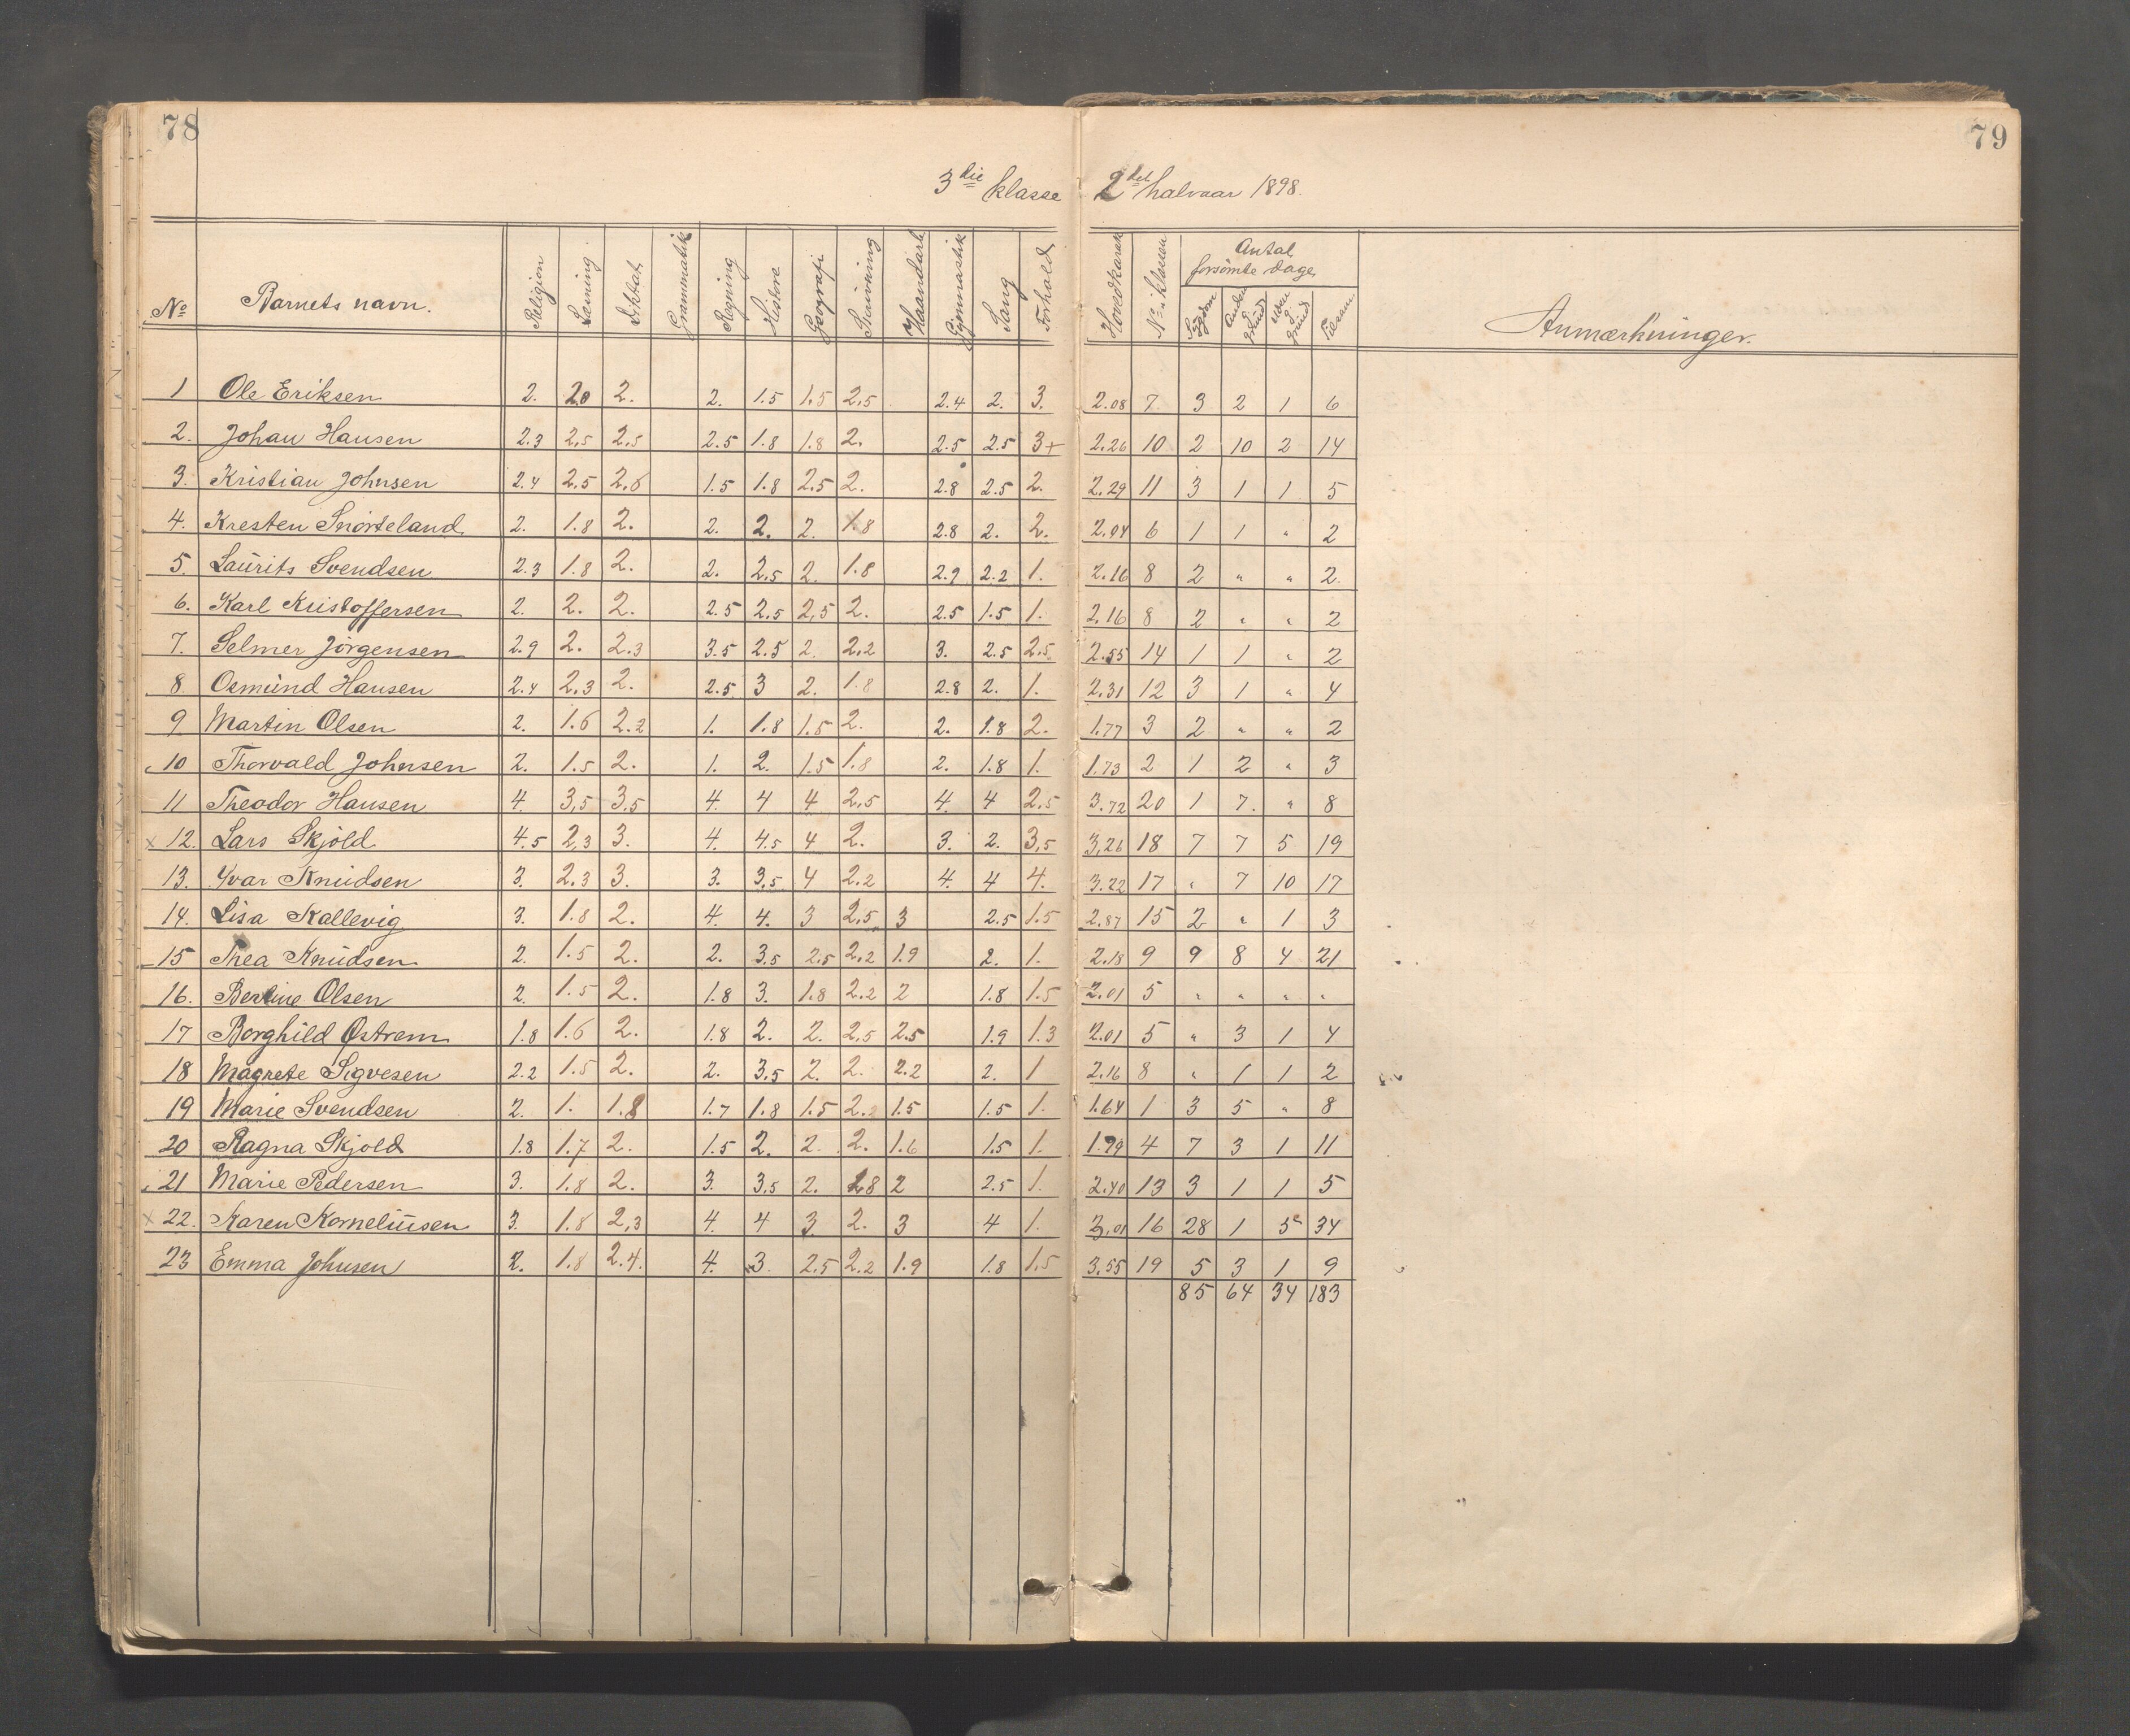 78
79
3die klasse 2det halvaar 1898.
No Barnets navn. Religion Læsning Diktat Grammatik Regning Historie Geografi Skrivning Haandarb. Gymnastik Sang Forhold Hovedkarak No i klassen Antal forsömte dage Sygdom Anden grund Uden grund Tilsam. Anmærkninger.
1 Ole Eriksen 2. 2.0 2. 2. 1.5 1.5 2.5 2.4 2. 3. 2.08 7. 3 2 1 6
2. Johan Hansen 2.3 2.5 2.5 2.5 1.8 1.8 2. 2.5 2.5 3+ 2.26 10 2 10 2 14
3. Kristian Johnsen 2.4 2.5 2.6 1.5 1.8 2.5 2. 2.8 2.5 2. 2.29 11 3 1 1 5
4. Kresten Snörteland 2. 1.8 2. 2. 2. 2. 1.8 2.8 2. 2. 2.04 6 1 1 " 2
5. Laurits Svendsen 2.3 1.8 2. 2. 2.5 2. 1.8 2.9 2.2 1. 2.16 8 2 " " 2.
6. Karl Kristoffersen 2. 2. 2. 2.5 2.5 2.5 2. 2.5 1.5 1. 2.16 8 2 " " 2
7. Selmer Jörgensen 2.9 2. 2.3 3.5 2.5 2. 2.2 3. 2.5 2.5 2.55 14 1 1 " 2
8. Osmund Hansen 2.4 2.3 2. 2.5 3 2. 1.8 2.8 2. 1. 2.31 12 3 1 " 4
9 Martin Olsen 2. 1.6 2.2 1. 1.8 1.5 2. 2. 1.8 2. 1.77 3 2 " " 2
10 Thorvald Johnsen 2. 1.5 2. 1. 2. 1.5 1.8 2. 1.8 1. 1.73 2 1 2 " 3
11 Theodor Hansen 4. 3.5 3.5 4. 4 4 2.5 4. 4 2.5 3.72 20 1 7. " 8
x 12. Lars Skjöld 4.5 2.3 3. 4. 4.5 4 2. 3. 2. 3.5 3.26 18 7 7 5 19
13. Yvar Knudsen 3. 2.3 3. 3. 3.5 4 2.2 4. 4 4. 3.22 17 " 7 10 17
14. Lisa Kallevig 3. 1.8 2. 4. 4. 3 2.5 3 2.5 1.5 2.87 15 2 " 1 3
15 Thea Knudsen 2. 1.5 2. 2. 3.5 2.5 2.2 1.9 2. 1. 2.18 9 9 8 4 21
16. Bertine Olsen 2. 1.5 2. 1.8 3. 1.8 2.2 2 1.8 1.5 2.01 5 " " " "
17 Borghild Østrem 1.8 1.6 2. 1.8 2. 2. 2.5 2.5 1.9 1.3 2.01 5 " 3 1 4
18 Magrete Sigvesen 2.2 1.5 2. 2. 3.5 2. 2. 2.2 2. 1 2.16 8 " 1 1 2
19 Marie Svendsen 2. 1. 1.8 1.7 1.8 1.5 2.2 1.5 1.5 1. 1.64 1 3 5 " 8
20 Ragna Skjold 1.8 1.7 2. 1.5 2. 2. 2. 1.6 1.5 1. 1.79 4 7 3 1 11
21 Marie Pedersen 3. 1.8 2. 3. 3.5 2. 1.8 2 2.5 1. 2.40 13 3 1 1 5
x 22. Karen Korneliusen 3. 1.8 2.3 4. 4 3. 2. 3 4 1. 3.01 16 28 1 5 34
23 Emma Johnsen 2. 1.8 2.4. 4. 3. 2.5 2.2 1.9 1.8 1.5 3.55 19 5 3 1 9
85 64 34 183